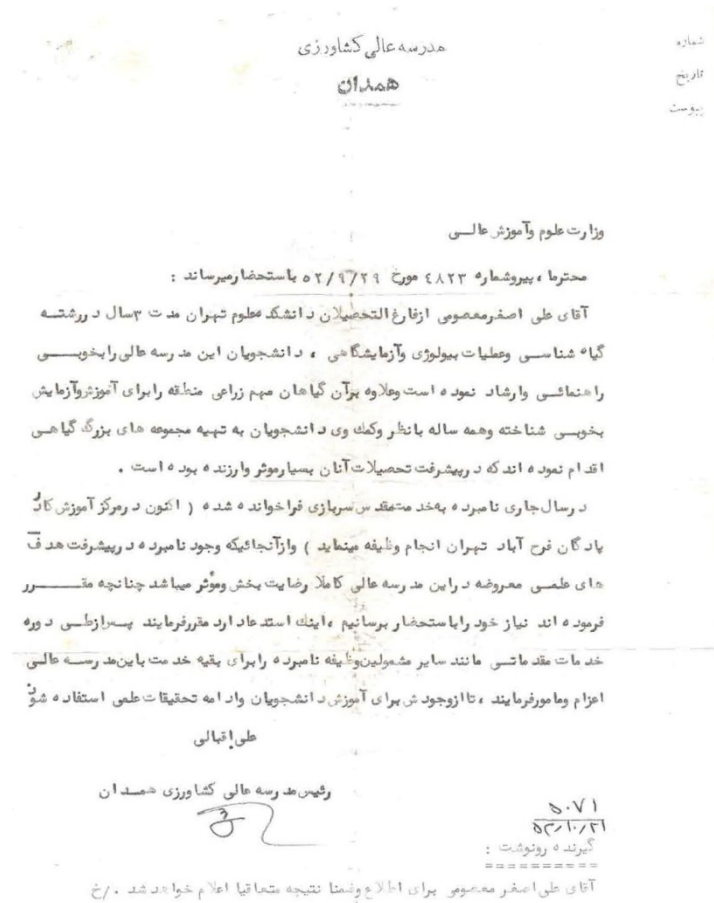 مدرسه عالی کشاورزی
همدان
شماره
تاریخ
پیوست
وزارت علوم وآموزش عالـــی
محترما ، پیروشماره ٤٨٢٣ مورخ ٥٢/٩/٢٩ باستحضارمیرساند :
آقای علی اصغرمعصومی ازفارغ التحصیلان دانشکده علوم تهران مدت ٣سال دررشتـــه
گیاه شناســی وعملیات بیولوژی وآزمایشگاهی ، دانشجویان این مدرسه عالی رابخوبـــی
راهنمائــی وارشاد نموده است وعلاوه برآن گیاهان مهم زراعی منطقه رابرای آموزش وآزمایش
بخوبــی شناخته وهمه ساله بانظر وکمك وی دانشجویان به تهیه مجموعه های بزرگ گیاهــی
اقدام نموده اندکه درپیشرفت تحصیلات آنان بسیارموثر وارزنده بوده است .
درسال جاری نامبرده به خدمت مقدس سربازی فراخوانده شده ( اکنون درمرکز آموزش کادر
پادگان فرح آباد تهران انجام وظیفه مینماید ) وازآنجائیکه وجود نامبرده درپیشرفت هدف
های علمــی معروضه دراین مدرسه عالی کاملا رضایت بخش ومؤثر میباشد چنانچه مقـــرر
فرموده اند نیاز خودراباستحضار برسانیم ، اینك استدعا دارد مقررفرمایند پس ازطــی دوره
خدمات مقدماتــی مانند سایر مشمولین وظیفه نامبرده رابرای بقیه خدمت باین مدرســه عالــی
اعزام ومامورفرمایند ، تاازوجودش برای آموزش دانشجویان وادامه تحقیقات علمی استفاده شود
علی اقبالی
رئیس مدرسه عالی کشاورزی همدان
٥٠٧١
٥٢/١٠/٢١
گیرنده رونوشت :
==========
آقای علی اصغر معصومی برای اطلاع وضمنا نتیجه متعاقبا اعلام خواهد شد ./خ